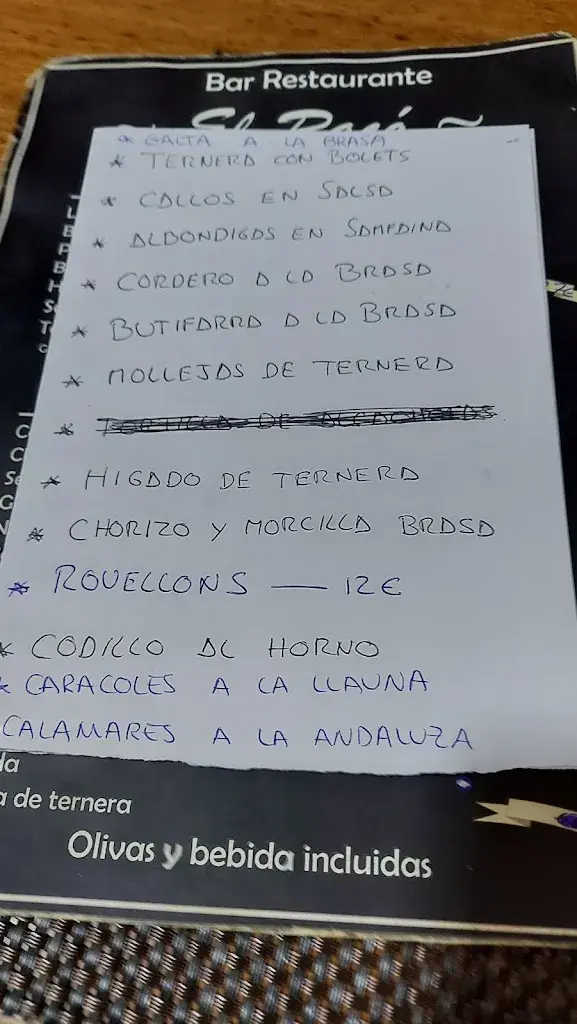 Bar Restaurante
* GALTA A LA BRASA
* TERNERA CON BOLETS
* CALLOS EN SALSA
* ALBONDIGAS EN SAMFAINA
* CORDERO A LA BRASA
* BUTIFARRA A LA BRASA
* MOLLEJAS DE TERNERA
* HIGADO DE TERNERA
* CHORIZO Y MORCILLA BRASA
* ROVELLONS — 12€
* CODILLO AL HORNO
* CARACOLES A LA LLAUNA
CALAMARES A LA ANDALUZA
de ternera
Olivas y bebida incluidas